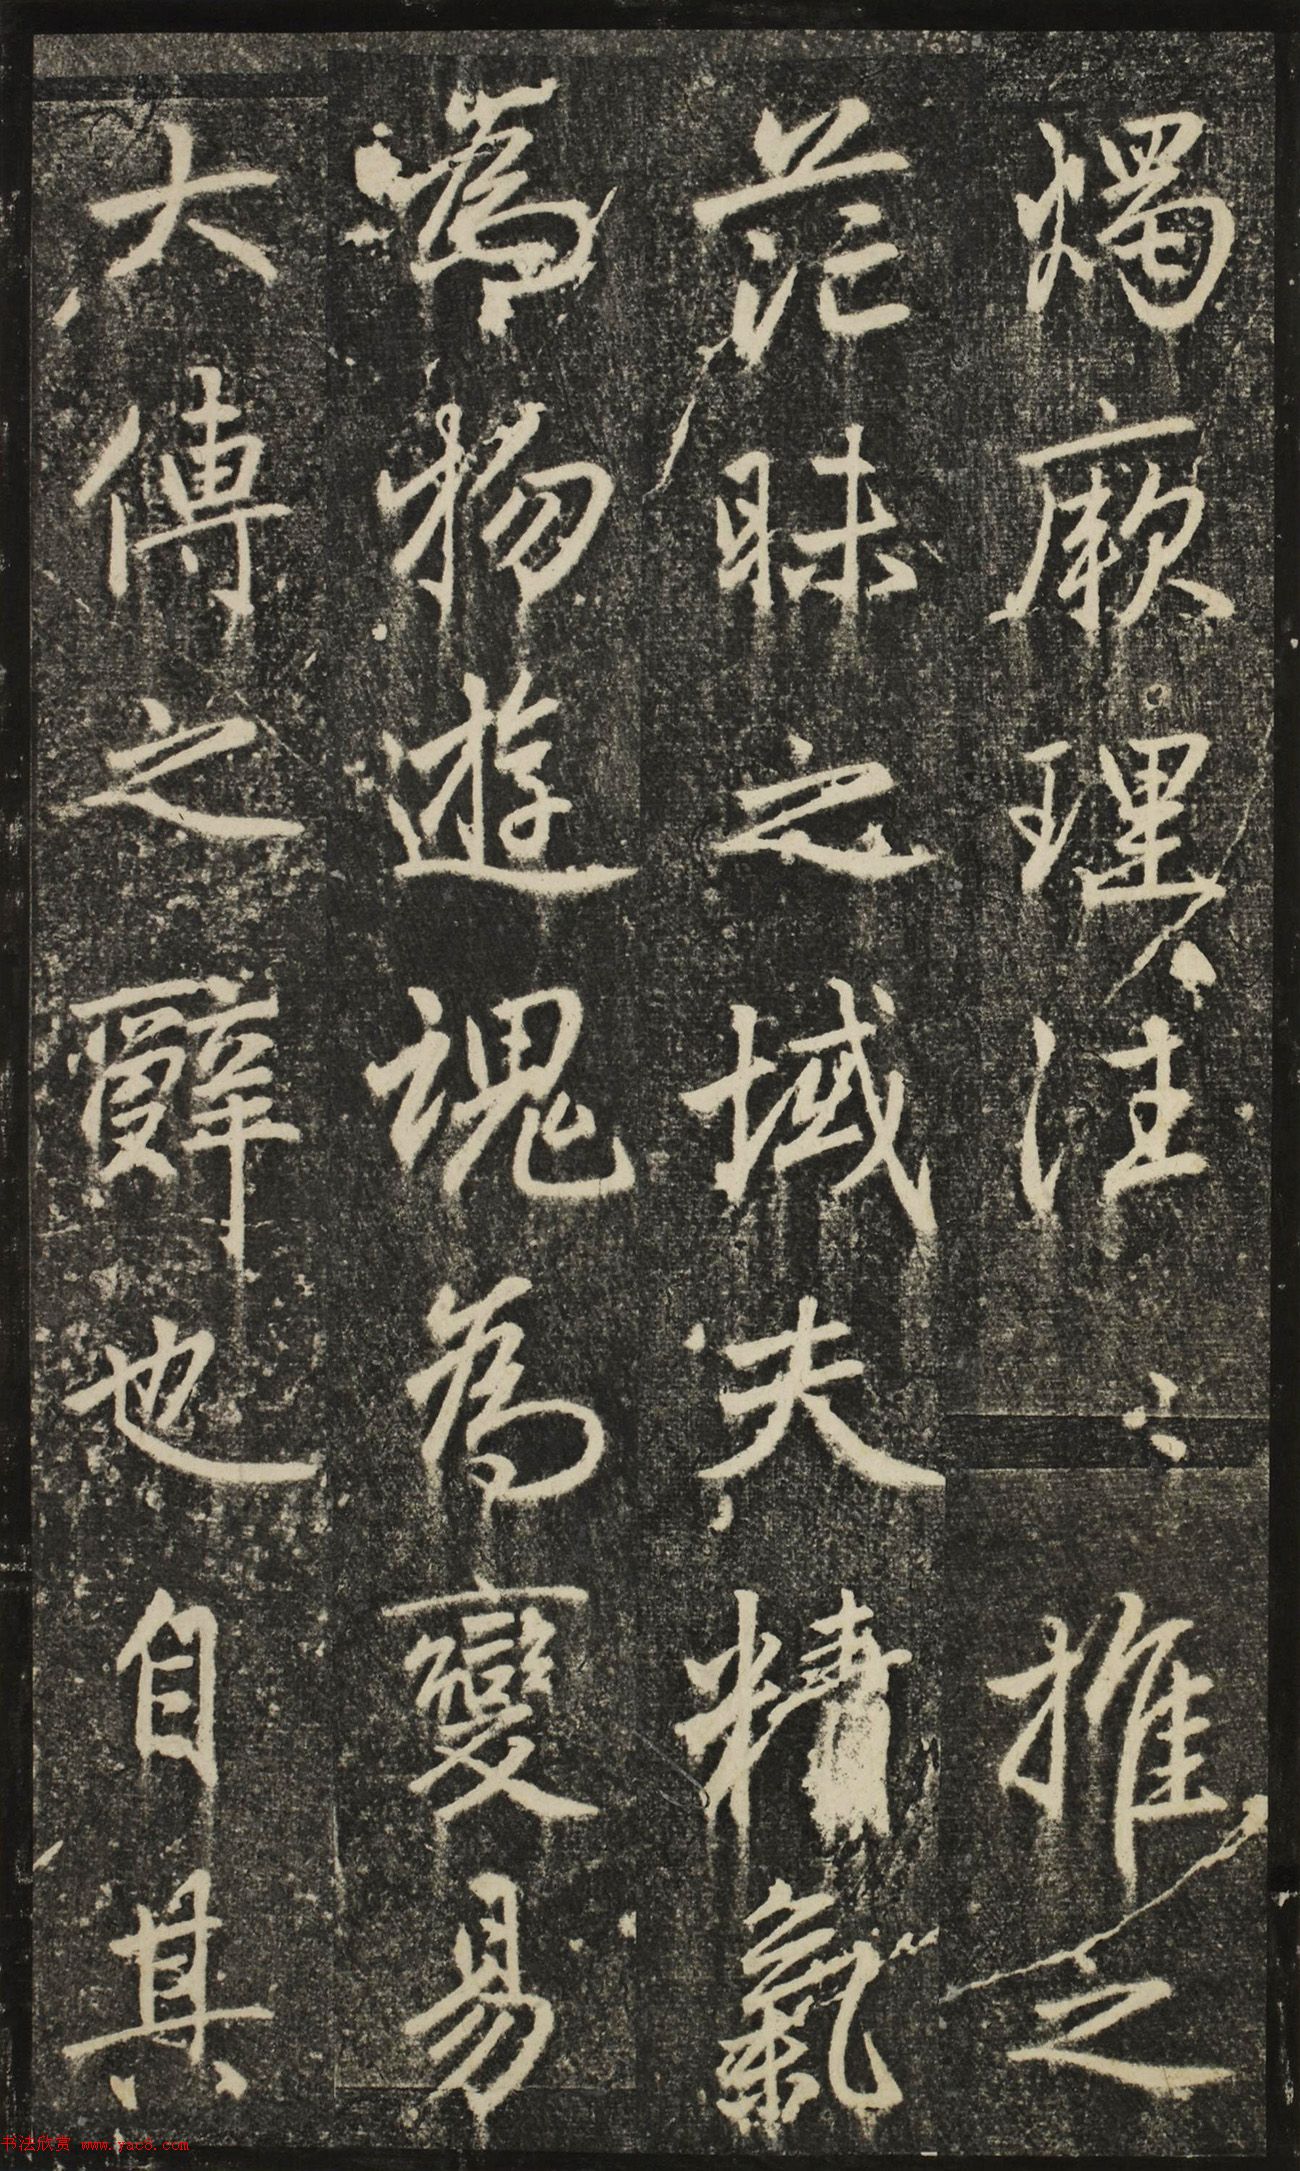 燭厥理注〻推之
茫昧之域夫精氣
為物遊魂為變易
大傳之辭也自其
书法欣赏 www.yac8.com